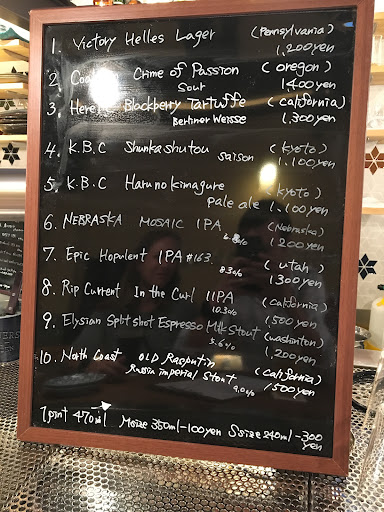 1. Victory Helles Lager (Pennsylvania)
1,200yen
2. Crime of Passion (oregon)
Sour 1,400yen
3 Blackberry Tartuffe (California)
Berliner Weisse 1,300yen
4. K.B.C Shunkashutou (kyoto)
saison 1,100yen
5. K.B.C Harunokimagure (kyoto)
pale ale 1,100yen
6. NEBRASKA MOSAIC IPA (Nebraska)
1,200yen
7. Epic Hopulent IPA #163. (utah)
8.3% 1300yen
8. Rip Current In the Curl IIPA (California)
10.3% 1,500yen
9. Elysian Split shot Espresso Milk Stout (washinton)
5.6% 1,200yen
10. North Coast OLD Rasputin (California)
Russia imperial Stout 9.0% 1500yen
1 pint 470ml Msize 350ml -100yen Ssize 240ml -300
yen